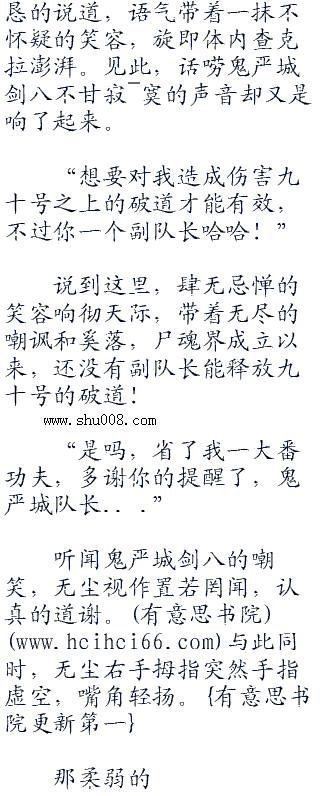 恳的说道，语气带着一抹不
怀疑的笑容，旋即体内查克
拉澎湃。见此，话唠鬼严城
剑八不甘寂¯寞的声音却又是
响了起来。
“想要对我造成伤害九
十号之上的破道才能有效，
不过你一个副队长哈哈！”
说到这里，肆无忌惮的
笑容响彻天际，带着无尽的
嘲讽和奚落，尸魂界成立以
来，还没有副队长能释放九
十号的破道！
www.shu008.com
“是吗，省了我一大番
功夫，多谢你的提醒了，鬼
严城队长．．．．”
听闻鬼严城剑八的嘲
笑，无尘视作置若罔闻，认
真的道谢。(有意思书院)
(www.hcihci66.com)与此同
时，无尘右手拇指突然手指
虚空，嘴角轻扬。{有意思书
院更新第一}
那柔弱的